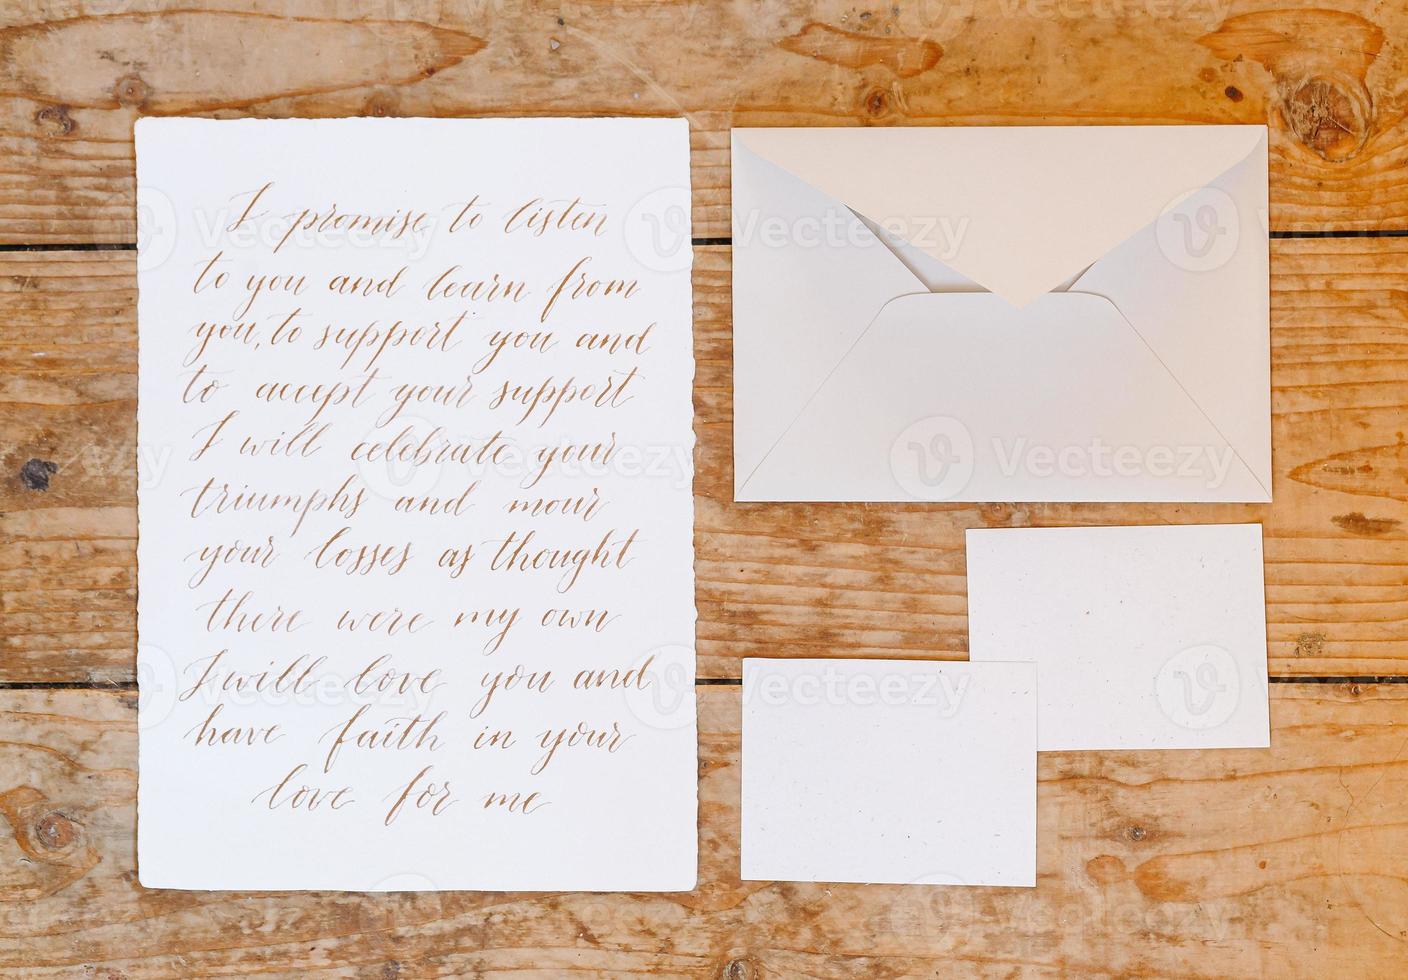 I promise to listen
to you and learn from
you, to support you and
to accept your support
I will celebrate your
triumphs and mour
your losses as thought
there were my own
I will love you and
have faith in your
love for me
Vecteezy
Vecteezy
Vecteezy
Vecteezy
Vecteezy
Vecteezy